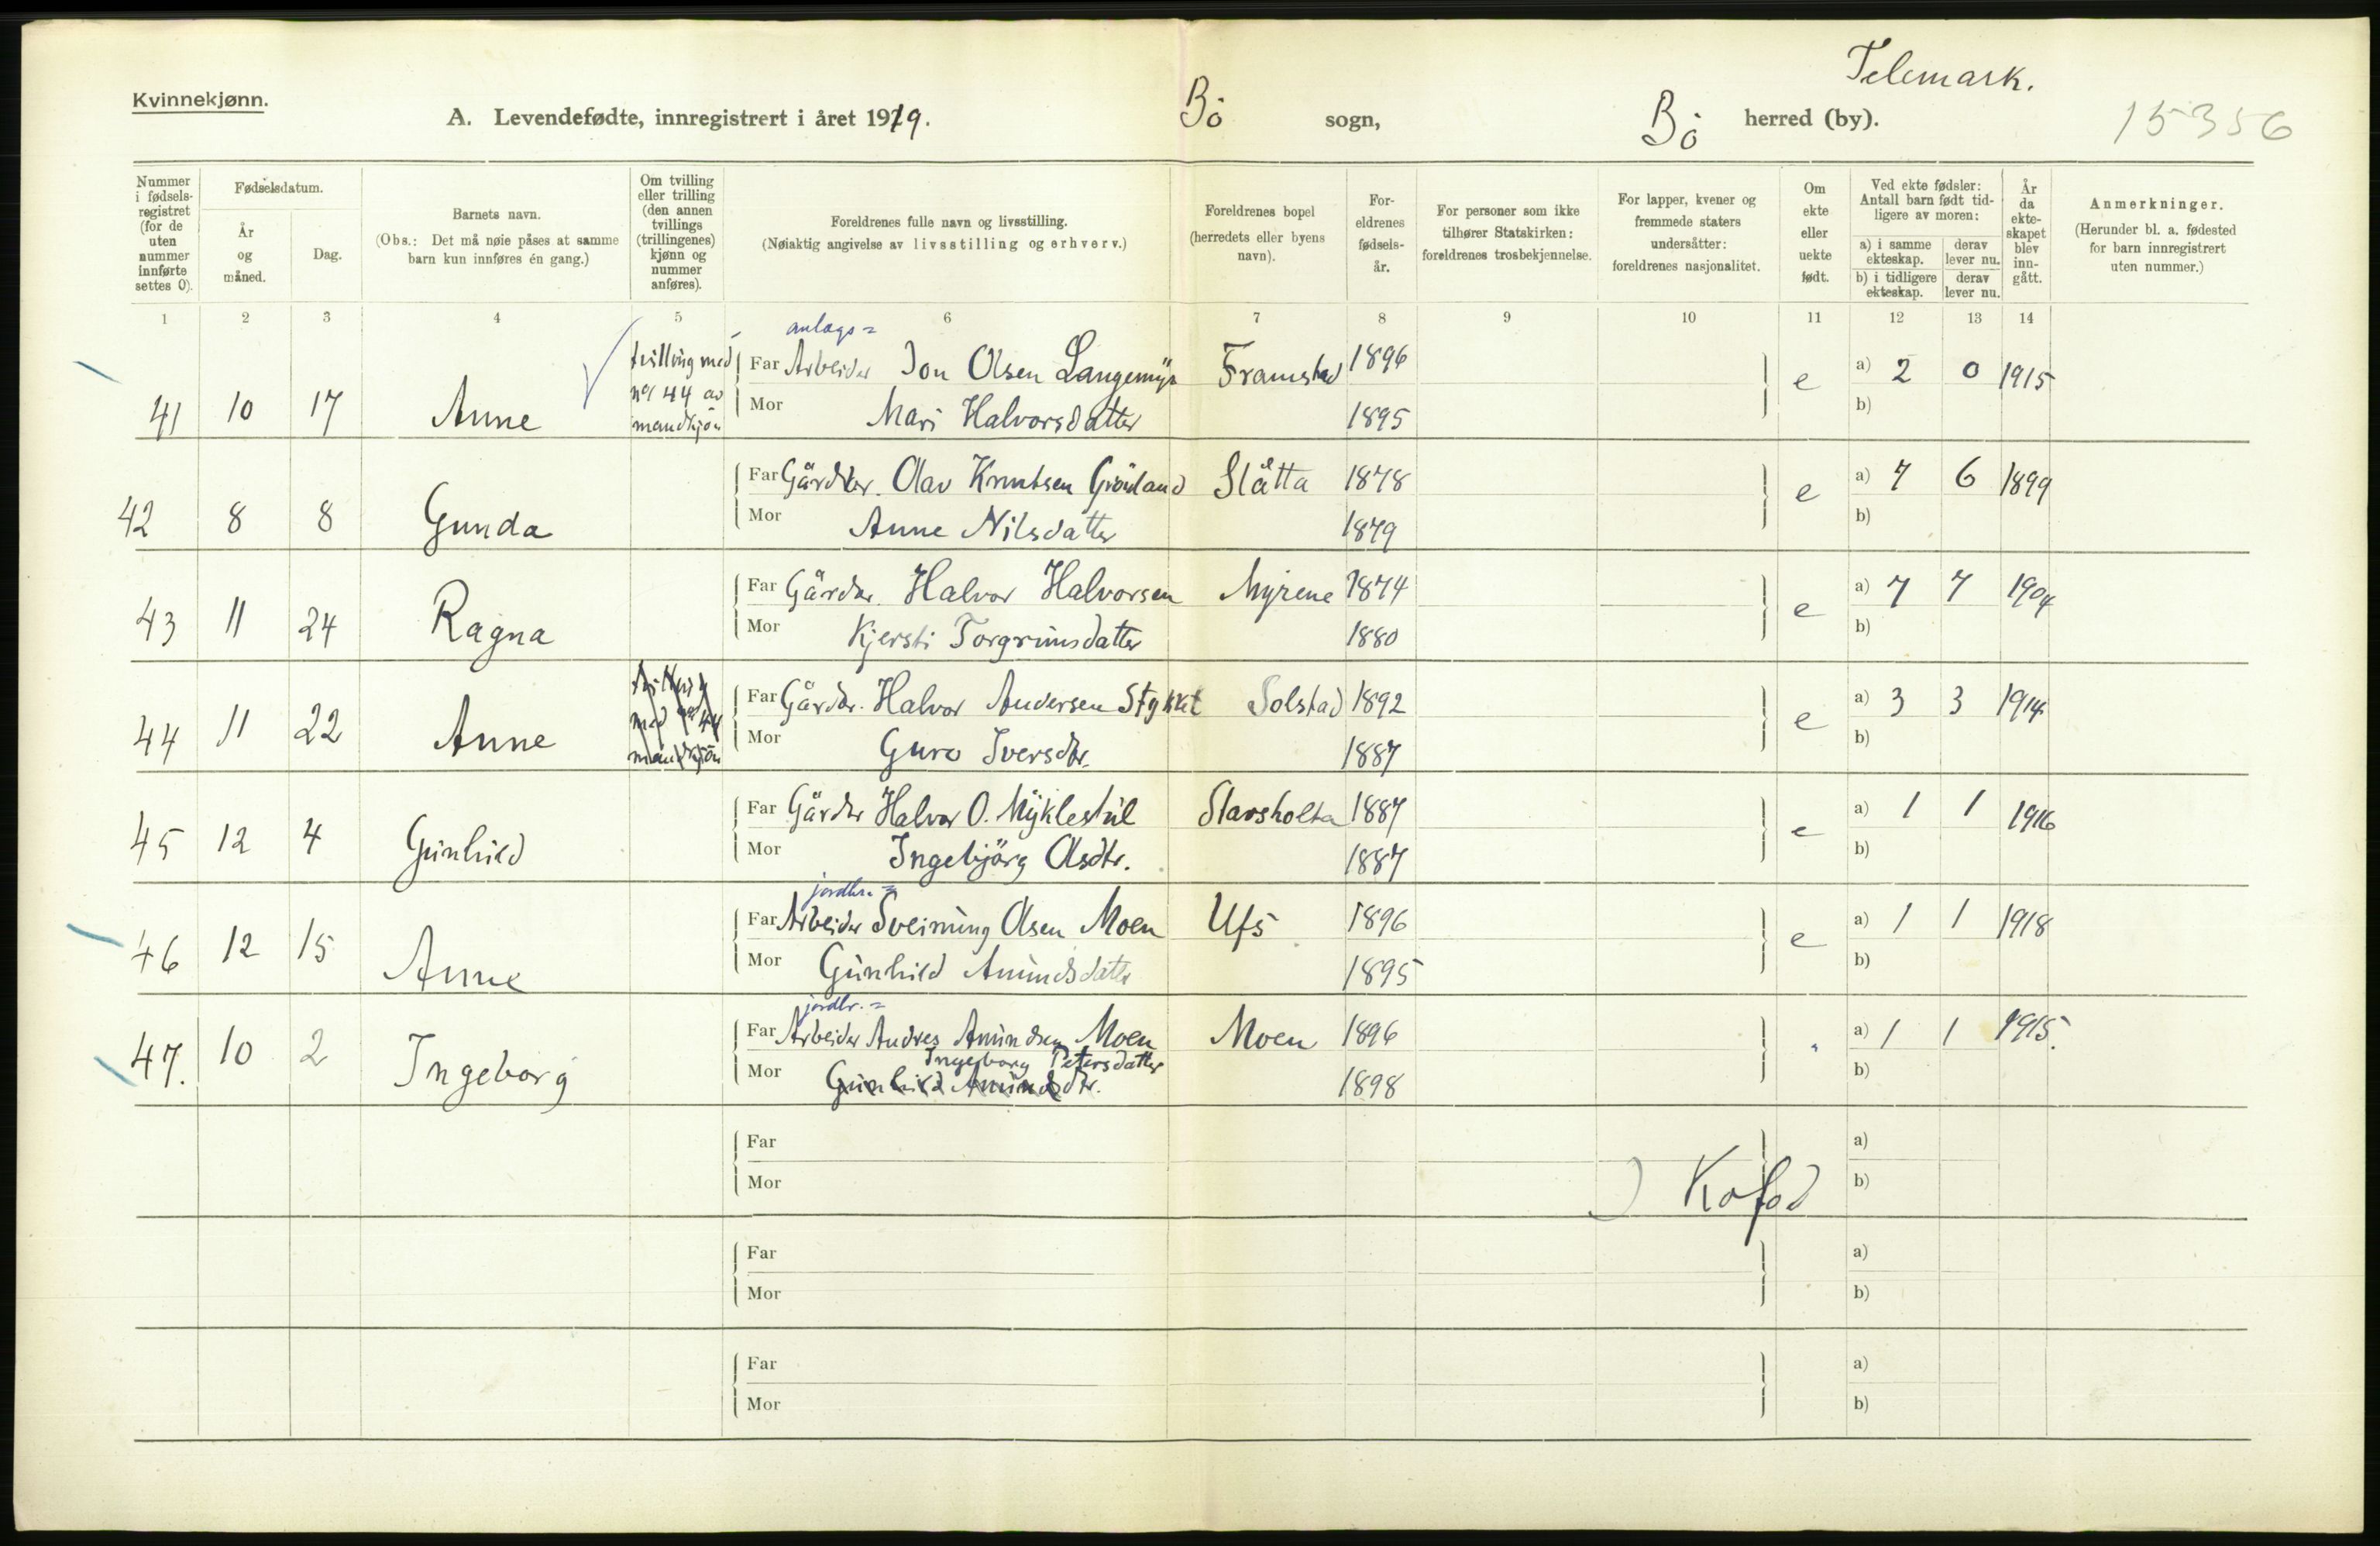 Telemark.
Kvinnekjønn.
A. Levendefødte, innregistrert i året 1919. Bö sogn, Bö herred (by).
15356
Nummer i fødsels-registret (for de uten nummer innførte settes 0).
Fødselsdatum.
År og måned.
Dag.
Barnets navn.
(Obs.: Det må nøie påses at samme barn kun innføres én gang.)
Om tvilling eller trilling (den annen tvillings (trillingenes) kjønn og nummer anføres).
Foreldrenes fulle navn og livsstilling.
(Nøiaktig angivelse av livsstilling og erhverv.)
Foreldrenes bopel (herredets eller byens navn).
For-eldrenes fødsels-år.
For personer som ikke tilhører Statskirken: foreldrenes trosbekjennelse.
For lapper, kvener og fremmede staters undersåtter: foreldrenes nasjonalitet.
Om ekte eller uekte født.
Ved ekte fødsler: Antall barn født tid-ligere av moren:
a) i samme ekteskap. derav lever nu.
b) i tidligere ekteskap. derav lever nu.
År da ekte-skapet blev inn-gått.
Anmerkninger.
(Herunder bl. a. fødested for barn innregistrert uten nummer.)
1 2 3 4 5 6 7 8 9 10 11 12 13 14
anlegs=
tvilling med Far Arbeider Jon Olsen Langemyr Framstad 1896 e a) 2 0 1915
41 10 17 Anne nr 44 av mandkjön Mor Mari Halvorsdatter 1895 b)
Far Gårdbr. Olav Knutsen Gröland Slåtta 1878 e a) 7 6 1899
42 8 8 Gunda Mor Anne Nilsdatter 1879 b)
Far Gårdbr. Halvor Halvorsen Myrene 1874 e a) 7 7 1904
43 11 24 Ragna Mor Kjersti Torgrimsdatter 1880 b)
tvilling med nr 44 mandkjön Far Gårdbr. Halvor Andersen Stykket Solstad 1892 e a) 3 3 1914
44 11 22 Anne Mor Guro Iversdtr. 1887 b)
Far Gårdbr Halvor O. Myklestul Stavsholta 1887 e a) 1 1 1916
45 12 4 Gunhild Mor Ingebjörg Olsdtr. 1887 b)
jordbr.=
Far Arbeider Sveinung Olsen Moen Ufs 1896 e a) 1 1 1918
46 12 15 Anne Mor Gunhild Amundsdatter 1895 b)
jordbr.=
Far Arbeider Andres Amundsen Moen Moen 1896 " a) 1 1 1915.
Ingeborg Petersdatter
47. 10 2 Ingeborg Mor Gunhild Amundsdtr. 1898 b)
Far a)
Mor b)
Kofod
Far a)
Mor b)
Far a)
Mor b)